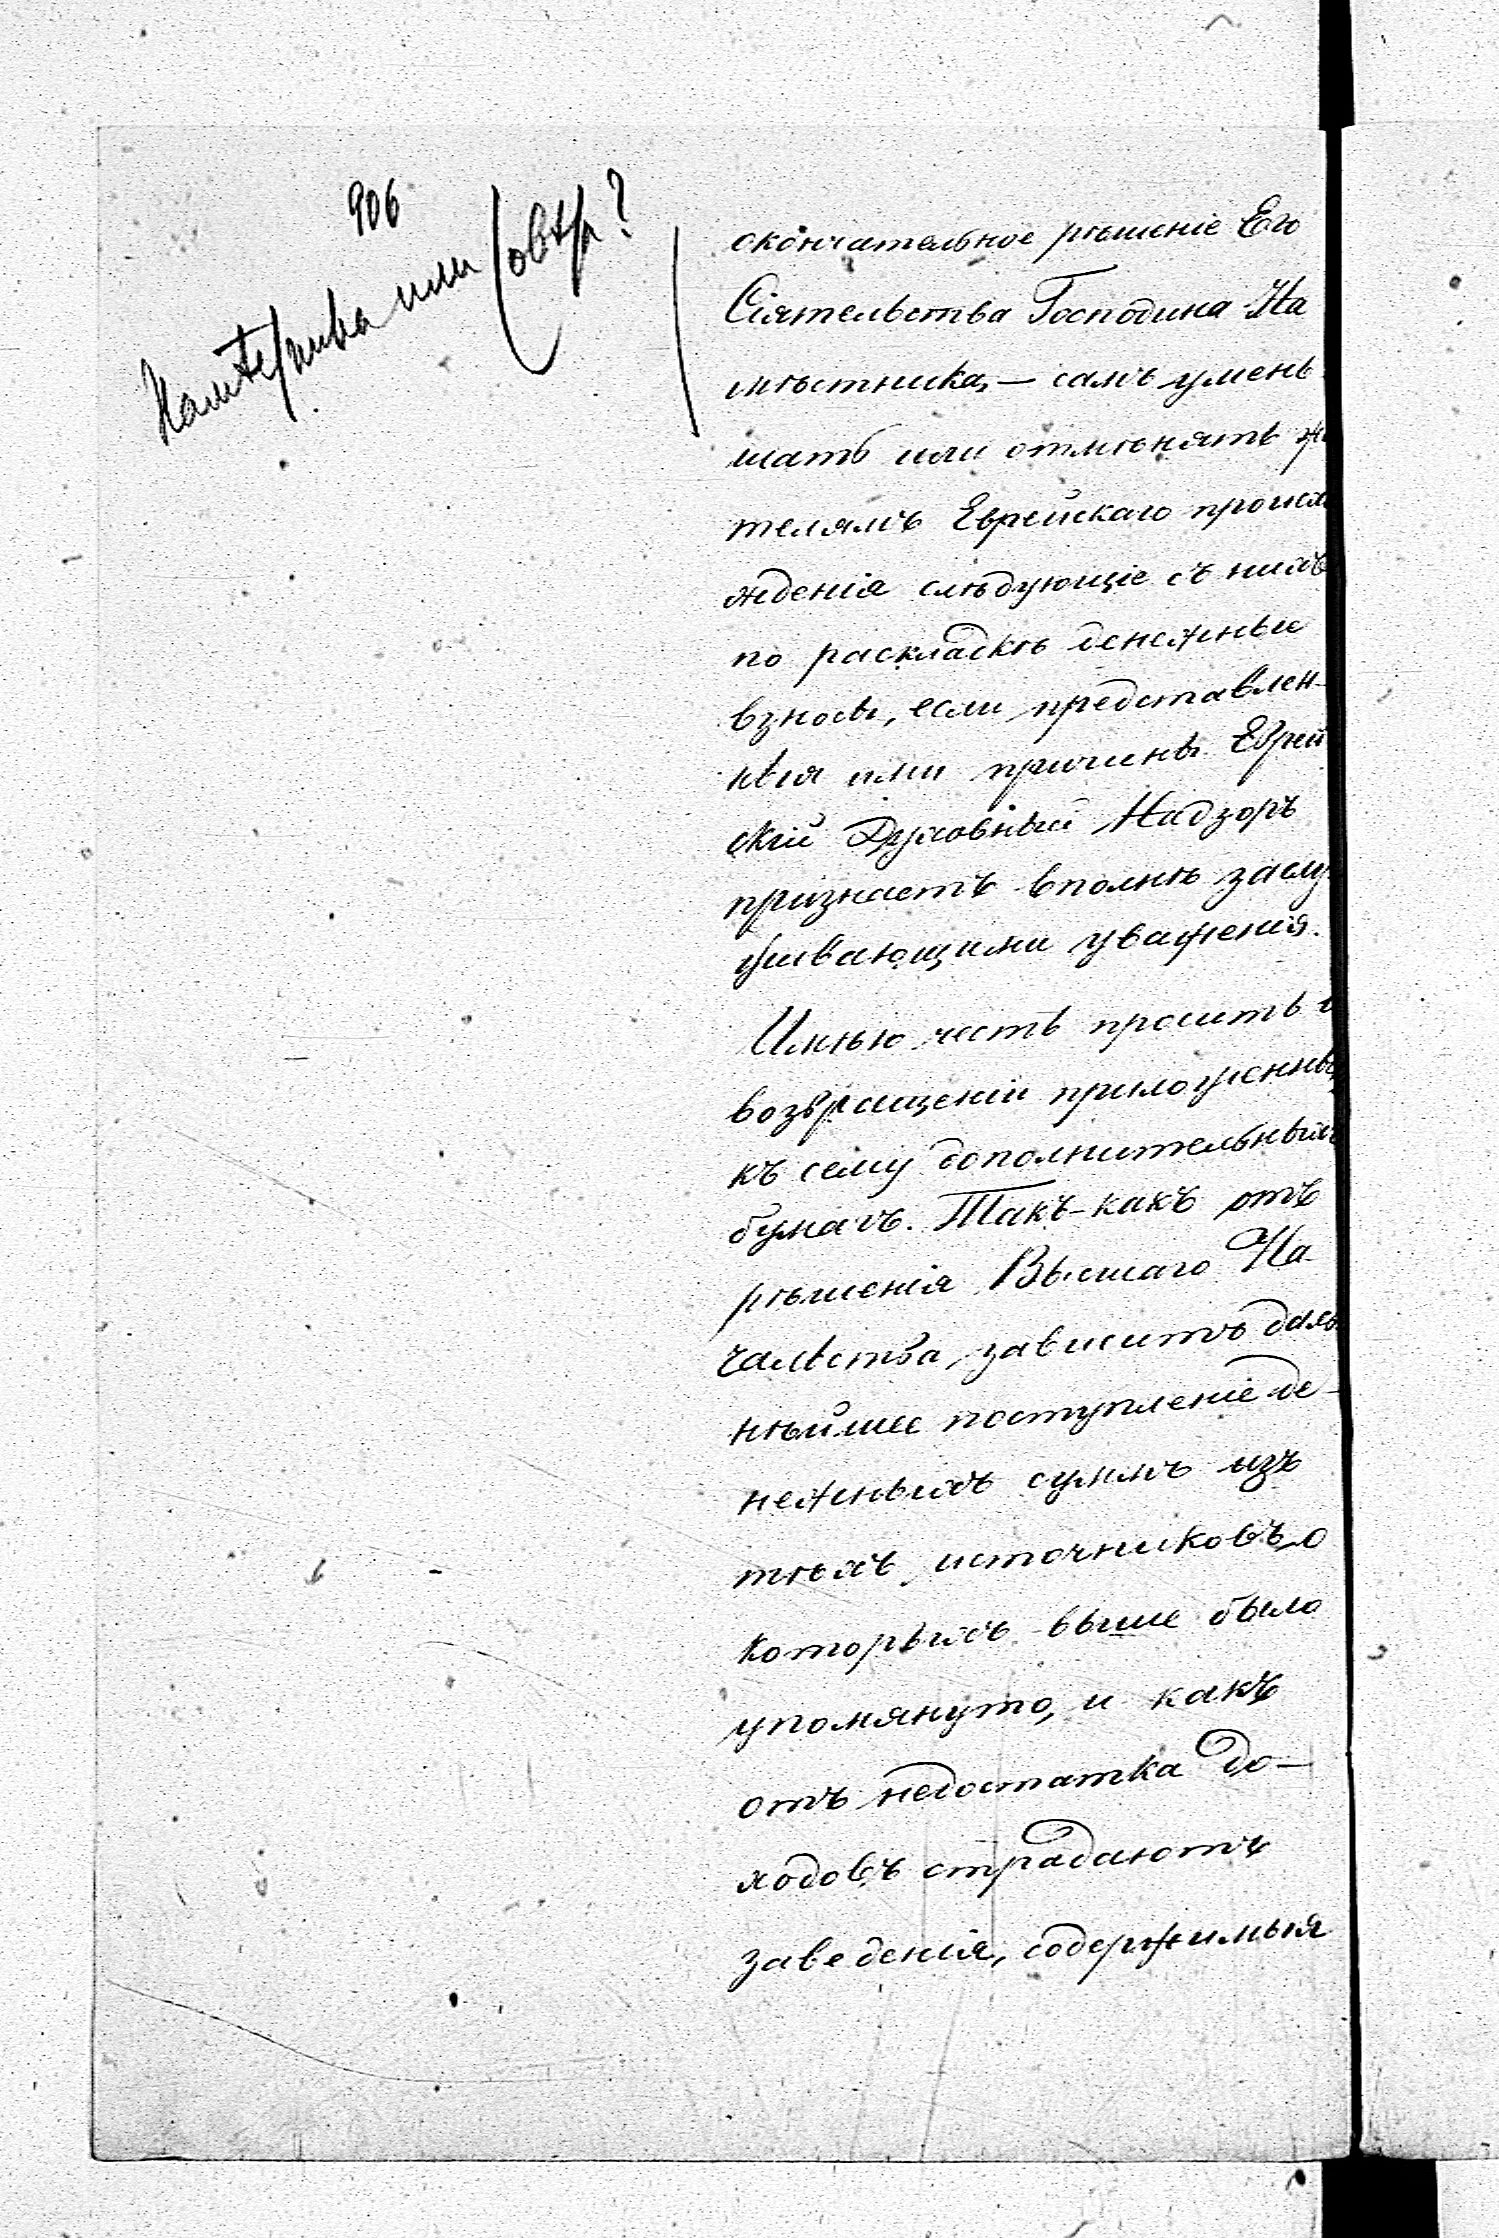 906
Намѣстника или Совѣта?
окончательное рѣшеніе Его
Сіятельства Господина На
мѣстника, — самъ умень
шать или отмѣнять жи
телямъ Еврейскаго происхо
жденія слѣдующіе съ нихъ
по раскладкѣ денежные
взносы, если представлен-
ныя ими причины Еврей
скій Духовный Надзоръ
признаетъ вполнѣ заслу
живающими уваженія.
Имѣю честь просить о
возвращеніи приложенныхъ
къ сему дополнительныхъ
бумагъ. Такъ-какъ отъ
рѣшенія Высшаго На
чальства, зависитъ даль
нѣйшее поступленіе де-
нежныхъ суммъ изъ
тѣхъ источниковъ, о
которыхъ выше было
упомянуто, и какъ
отъ недостатка до-
ходовъ страдаютъ
заведенія, содержимыя